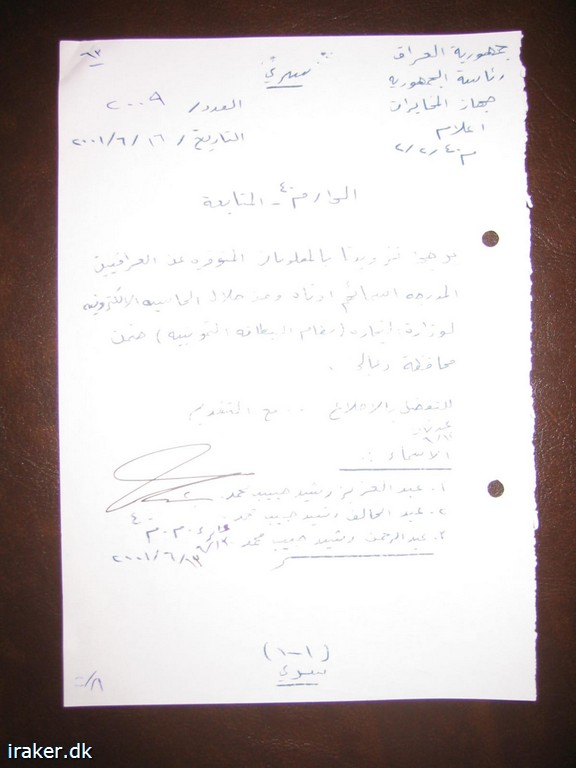 ٦٣
سري
جمهورية العراق
رئاسة الجمهورية
جهاز المخابرات
اعلام
م٤٠/٢/٢
العدد/ ٢٠٠٩
التاريخ/ ١٦/٦/٢٠٠١
م٤٠ - المتابعة
يرجى تزويدنا بالمعلومات المتوفره عن العراقيين
المدرجه اسمائهم ادناه ومن خلال الحاسبه الالكترونيه
لوزارة التجاره (نظام البطاقه التموينيه) ضمن
محافظة ديالى .
للتفضل بالاطلاع ... مع التقدير
الاسماء :.
١. عبد العزيز رشيد حبيب محمد
٢. عبد الخالق رشيد حبيب محمد
٣. عبد الرحمن رشيد حبيب محمد
٢٠٠١/٦/١٣
(١-١)
سري
iraker.dk